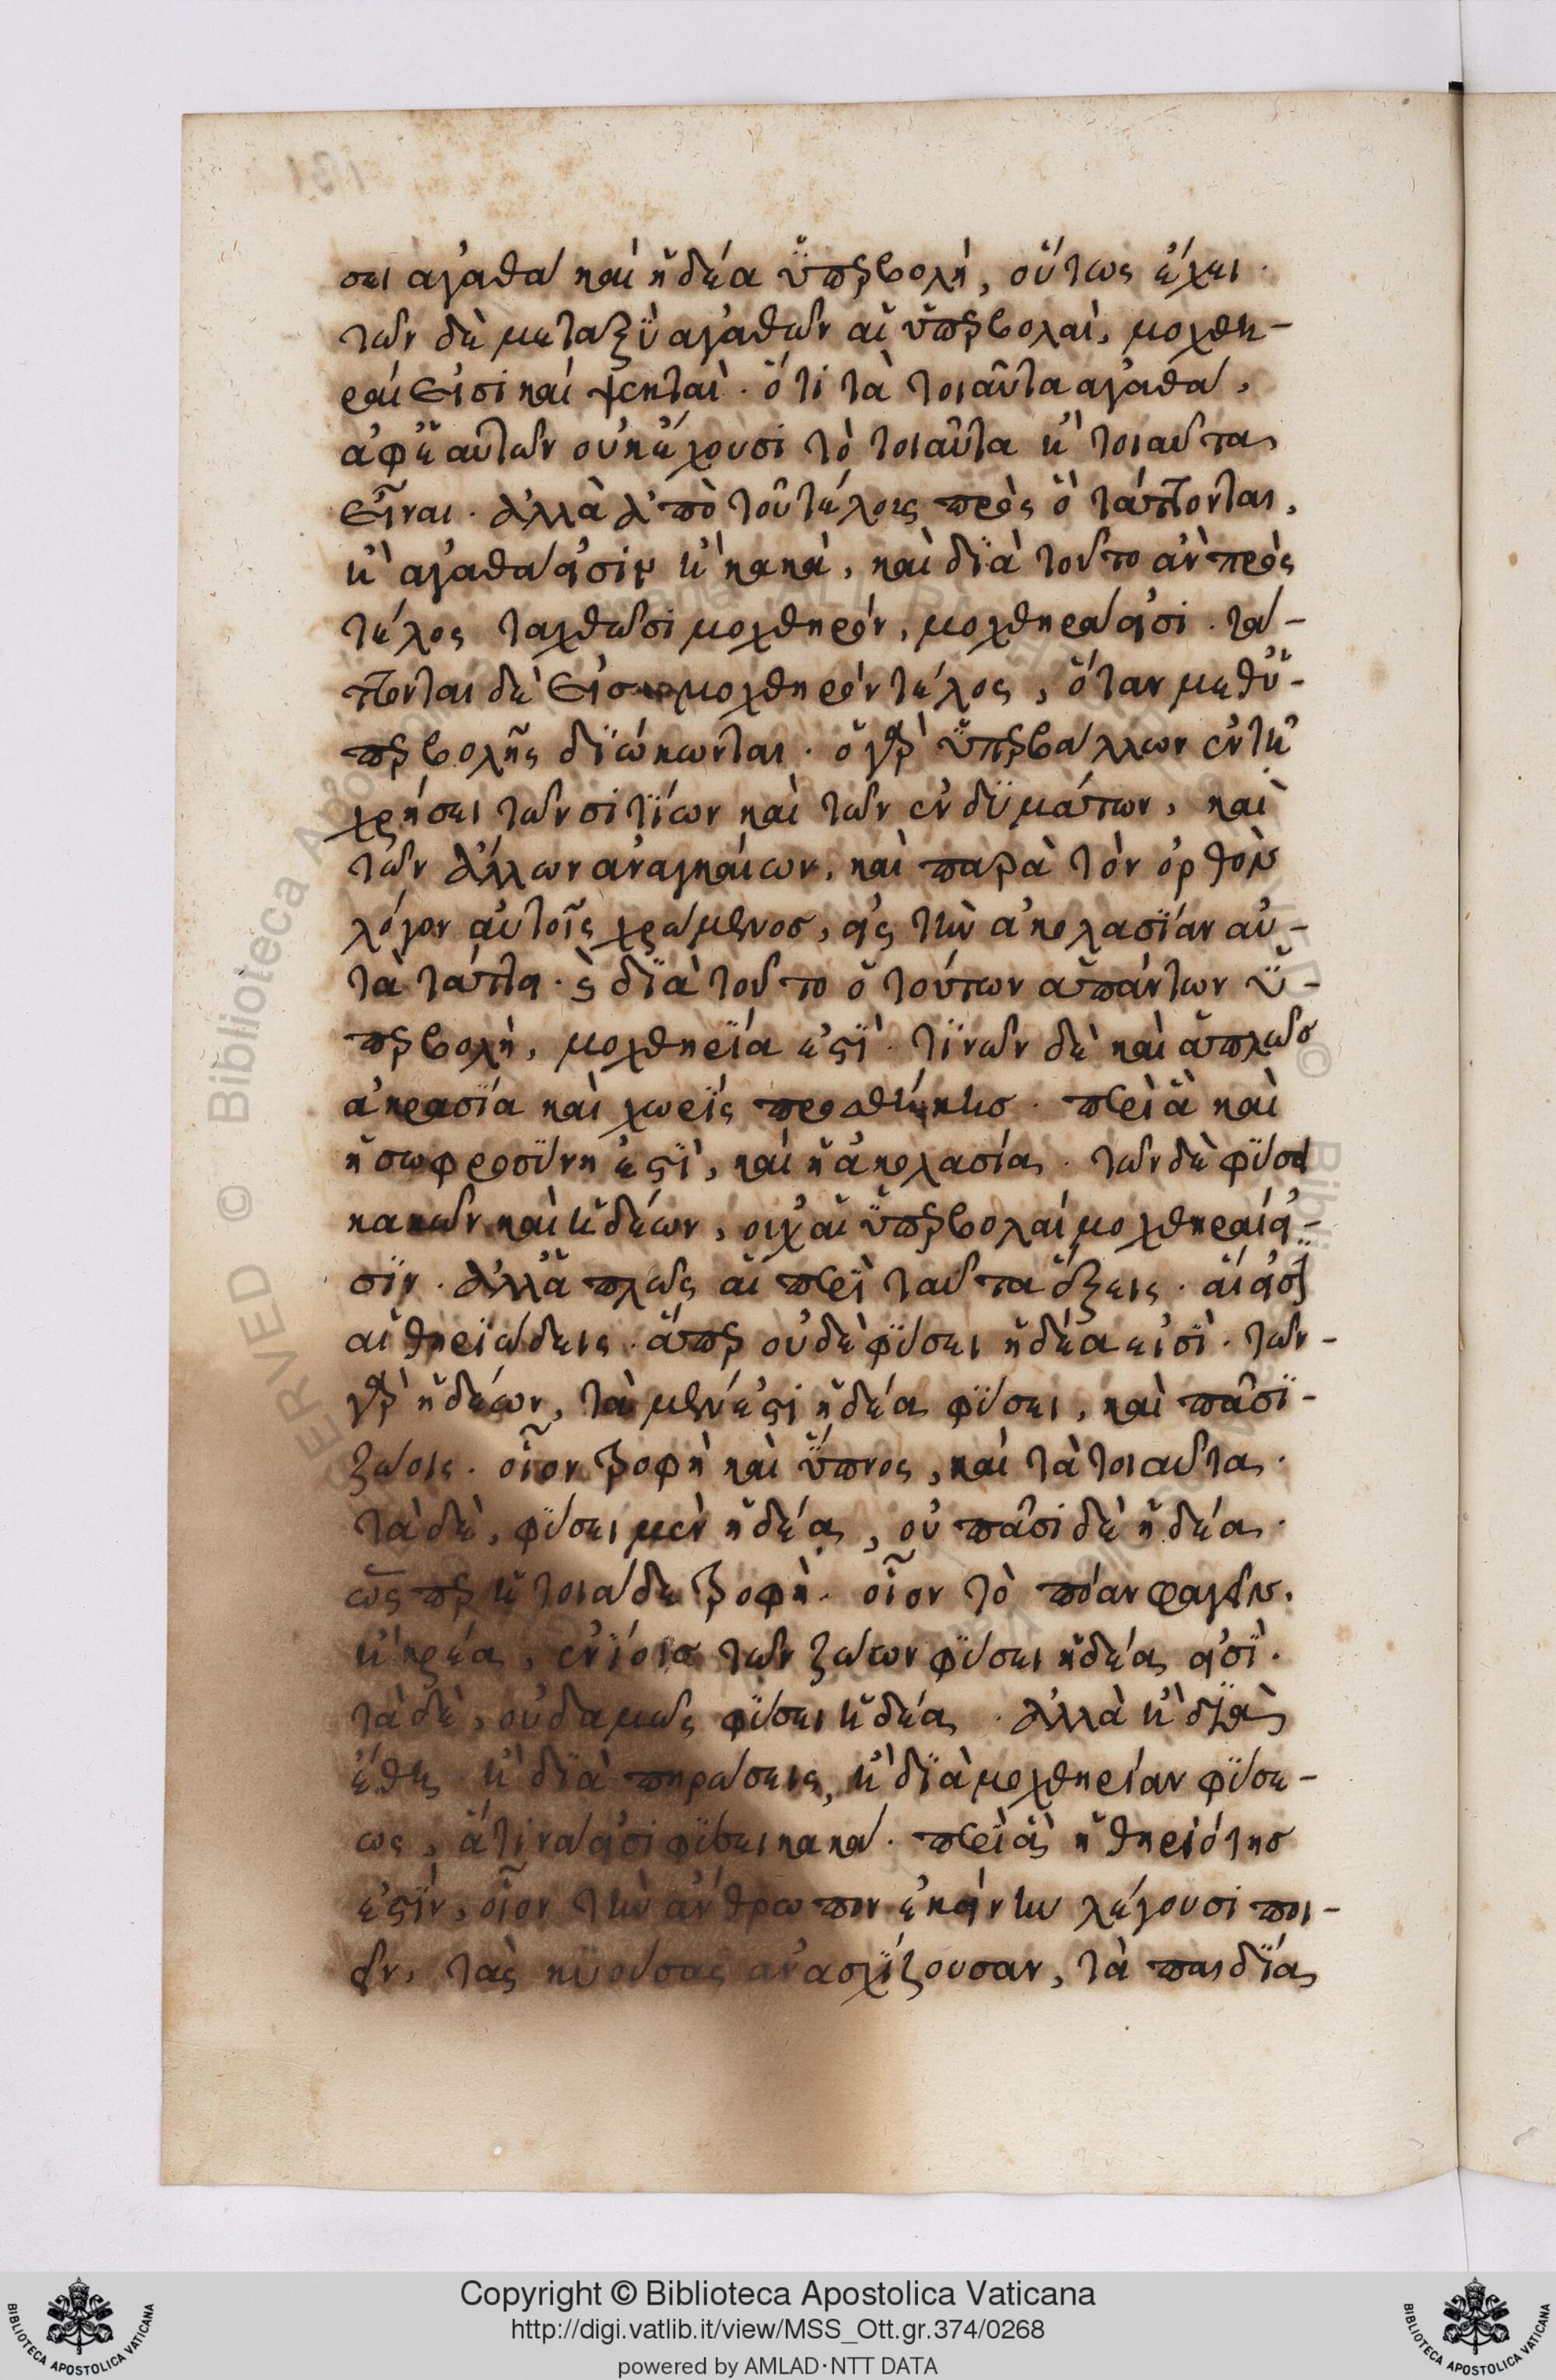 σει ἀγαθὰ καὶ ἡδέα ὑπερβολὴ, οὕτως ἔχει·
τῶν δὲ μεταξὺ ἀγαθῶν αἱ ὑπερβολαὶ, μοχθη-
ραί εἰσι καὶ ψεκταὶ. ὅτι τὰ τοιαῦτα ἀγαθὰ,
ἀφ' ἑαυτῶν οὐκ ἔχουσι τὸ τοιαῦτα ἢ τοιαῦτα
εἶναι. ἀλλὰ ἀπὸ τοῦ τέλους πρὸς ὃ τάττονται,
ἢ ἀγαθά εἰσιν ἢ κακὰ, καὶ διὰ τοῦτο ἂν πρὸς
τέλος ταχθῶσι μοχθηρόν, μοχθηρά εἰσι. τά-
ττονται δὲ εἰς μοχθηρόν τέλος, ὅταν μεθ' ὑ-
περβολῆς διώκωνται. ὁ γὰρ ὑπερβάλλων ἐν τῇ
χρήσει τῶν σιτίων καὶ τῶν ἐνδυμάτων, καὶ
τῶν ἄλλων ἀναγκαίων, καὶ παρὰ τὸν ὀρθὸν
λόγον αὐτοῖς χρώμενος, εἰς τὴν ἀκολασίαν αὐ-
τὰ τάττει. ϛ διὰ τοῦτο ὁ τούτων ἁπάντων ὑ-
περβολὴ, μοχθηρία ἐστὶ. τινῶν δὲ καὶ ἁπλῶς
ἀκρασία καὶ χωρὶς προσθήκης. περὶ ἃ καὶ
ἡ σωφροσύνη ἐστὶ, καὶ ἡ ἀκολασία. τῶν δὲ φύσει
κακῶν καὶ ἡδέων, οὐχ αἱ ὑπερβολαί μοχθηραί εἰ-
σιν. ἀλλ' ἁπλῶς αἱ περὶ ταῦτα ἕξεις. αἵ εἰσι
αἱ θηριώδεις. ἅπερ οὐδὲ φύσει ἡδέα εἰσὶ. τῶν-
γὰρ ἡδέων, τὰ μέν ἐστι ἡδέα φύσει, καὶ πᾶσι-
ζώοις. οἷον τροφὴ καὶ ὕπνος, καὶ τὰ τοιαῦτα.
τὰ δὲ, φύσει μὲν ἡδέα, οὐ πᾶσι δὲ ἡδέα.
ὥσπερ ἡ τοιάδε τροφὴ. οἷον τὸ πόαν φαγεῖν.
ἢ κρέα, ἐνίοις τῶν ζώων φύσει ἡδέα εἰσὶ.
τὰ δὲ, οὐδαμῶς φύσει ἡδέα. ἀλλὰ ἢ διὰ
ἔθη ἢ διὰ πηρώσεις, ἢ διὰ μοχθηρίαν φύσε-
ως, ἅτινά εἰσι φύσει κακά. περὶ ἃ ἡ θηριότης
ἐστὶν, οἷον τὴν ἄνθρωπον ἐκείνην λέγουσι ποι-
εῖν, τὰς κυούσας ἀνασχίζουσαν, τὰ παιδία